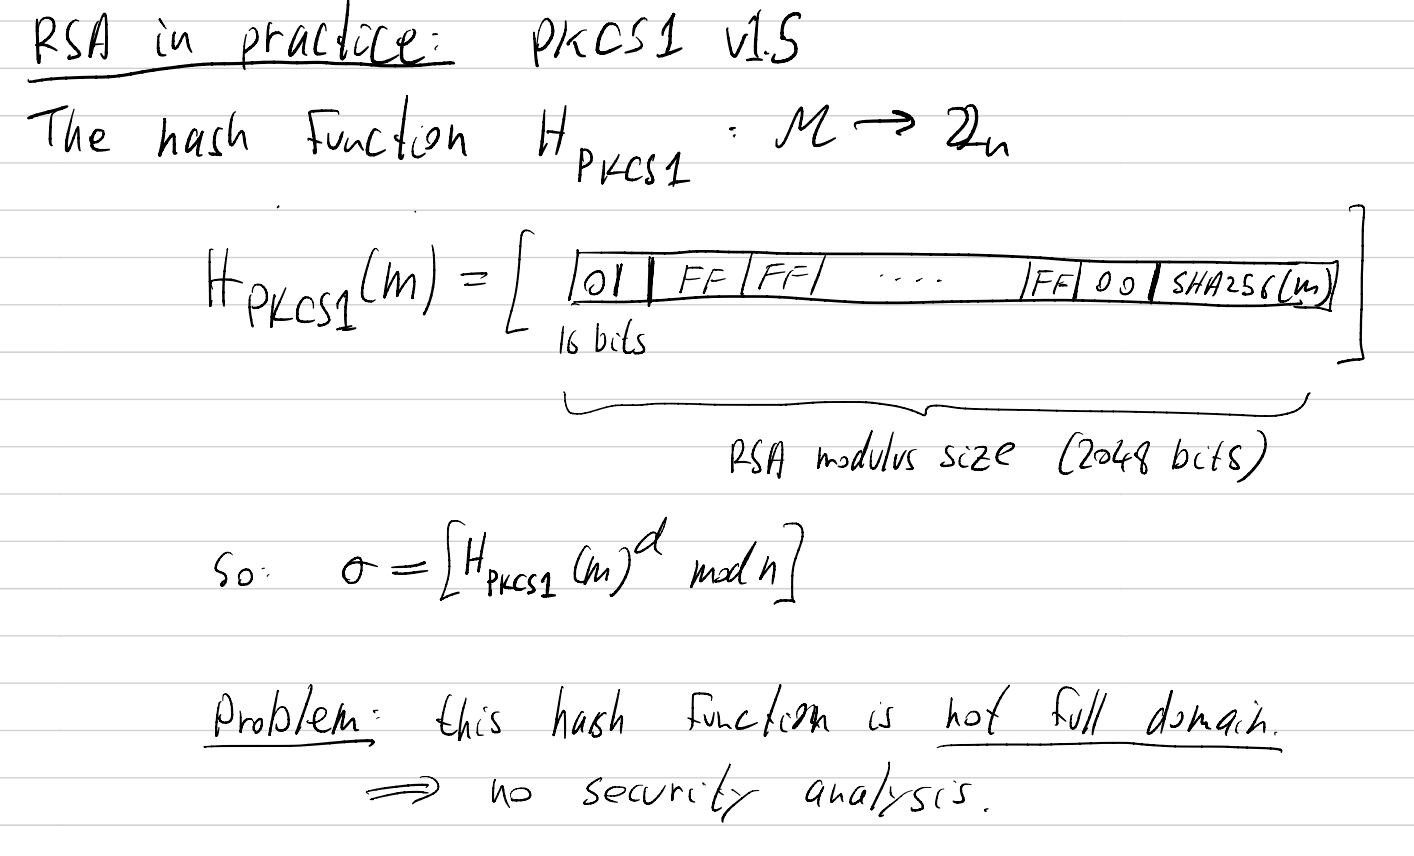 RSA in practice: PKCS1 v1.5
The hash function H_PKCS1 : M → ℤ_n
H_PKCS1(m) = [ 01 | FF | FF | ..... | FF | 00 | SHA256(m) ]
16 bits
RSA modulus size (2048 bits)
So: σ = [H_PKCS1 (m)^d mod n]
Problem: this hash function is not full domain.
⇒ no security analysis.